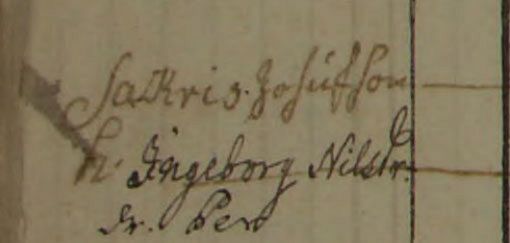 Sakris. Josúfson
h. Ingeborg Nilsdr.
dr. Per